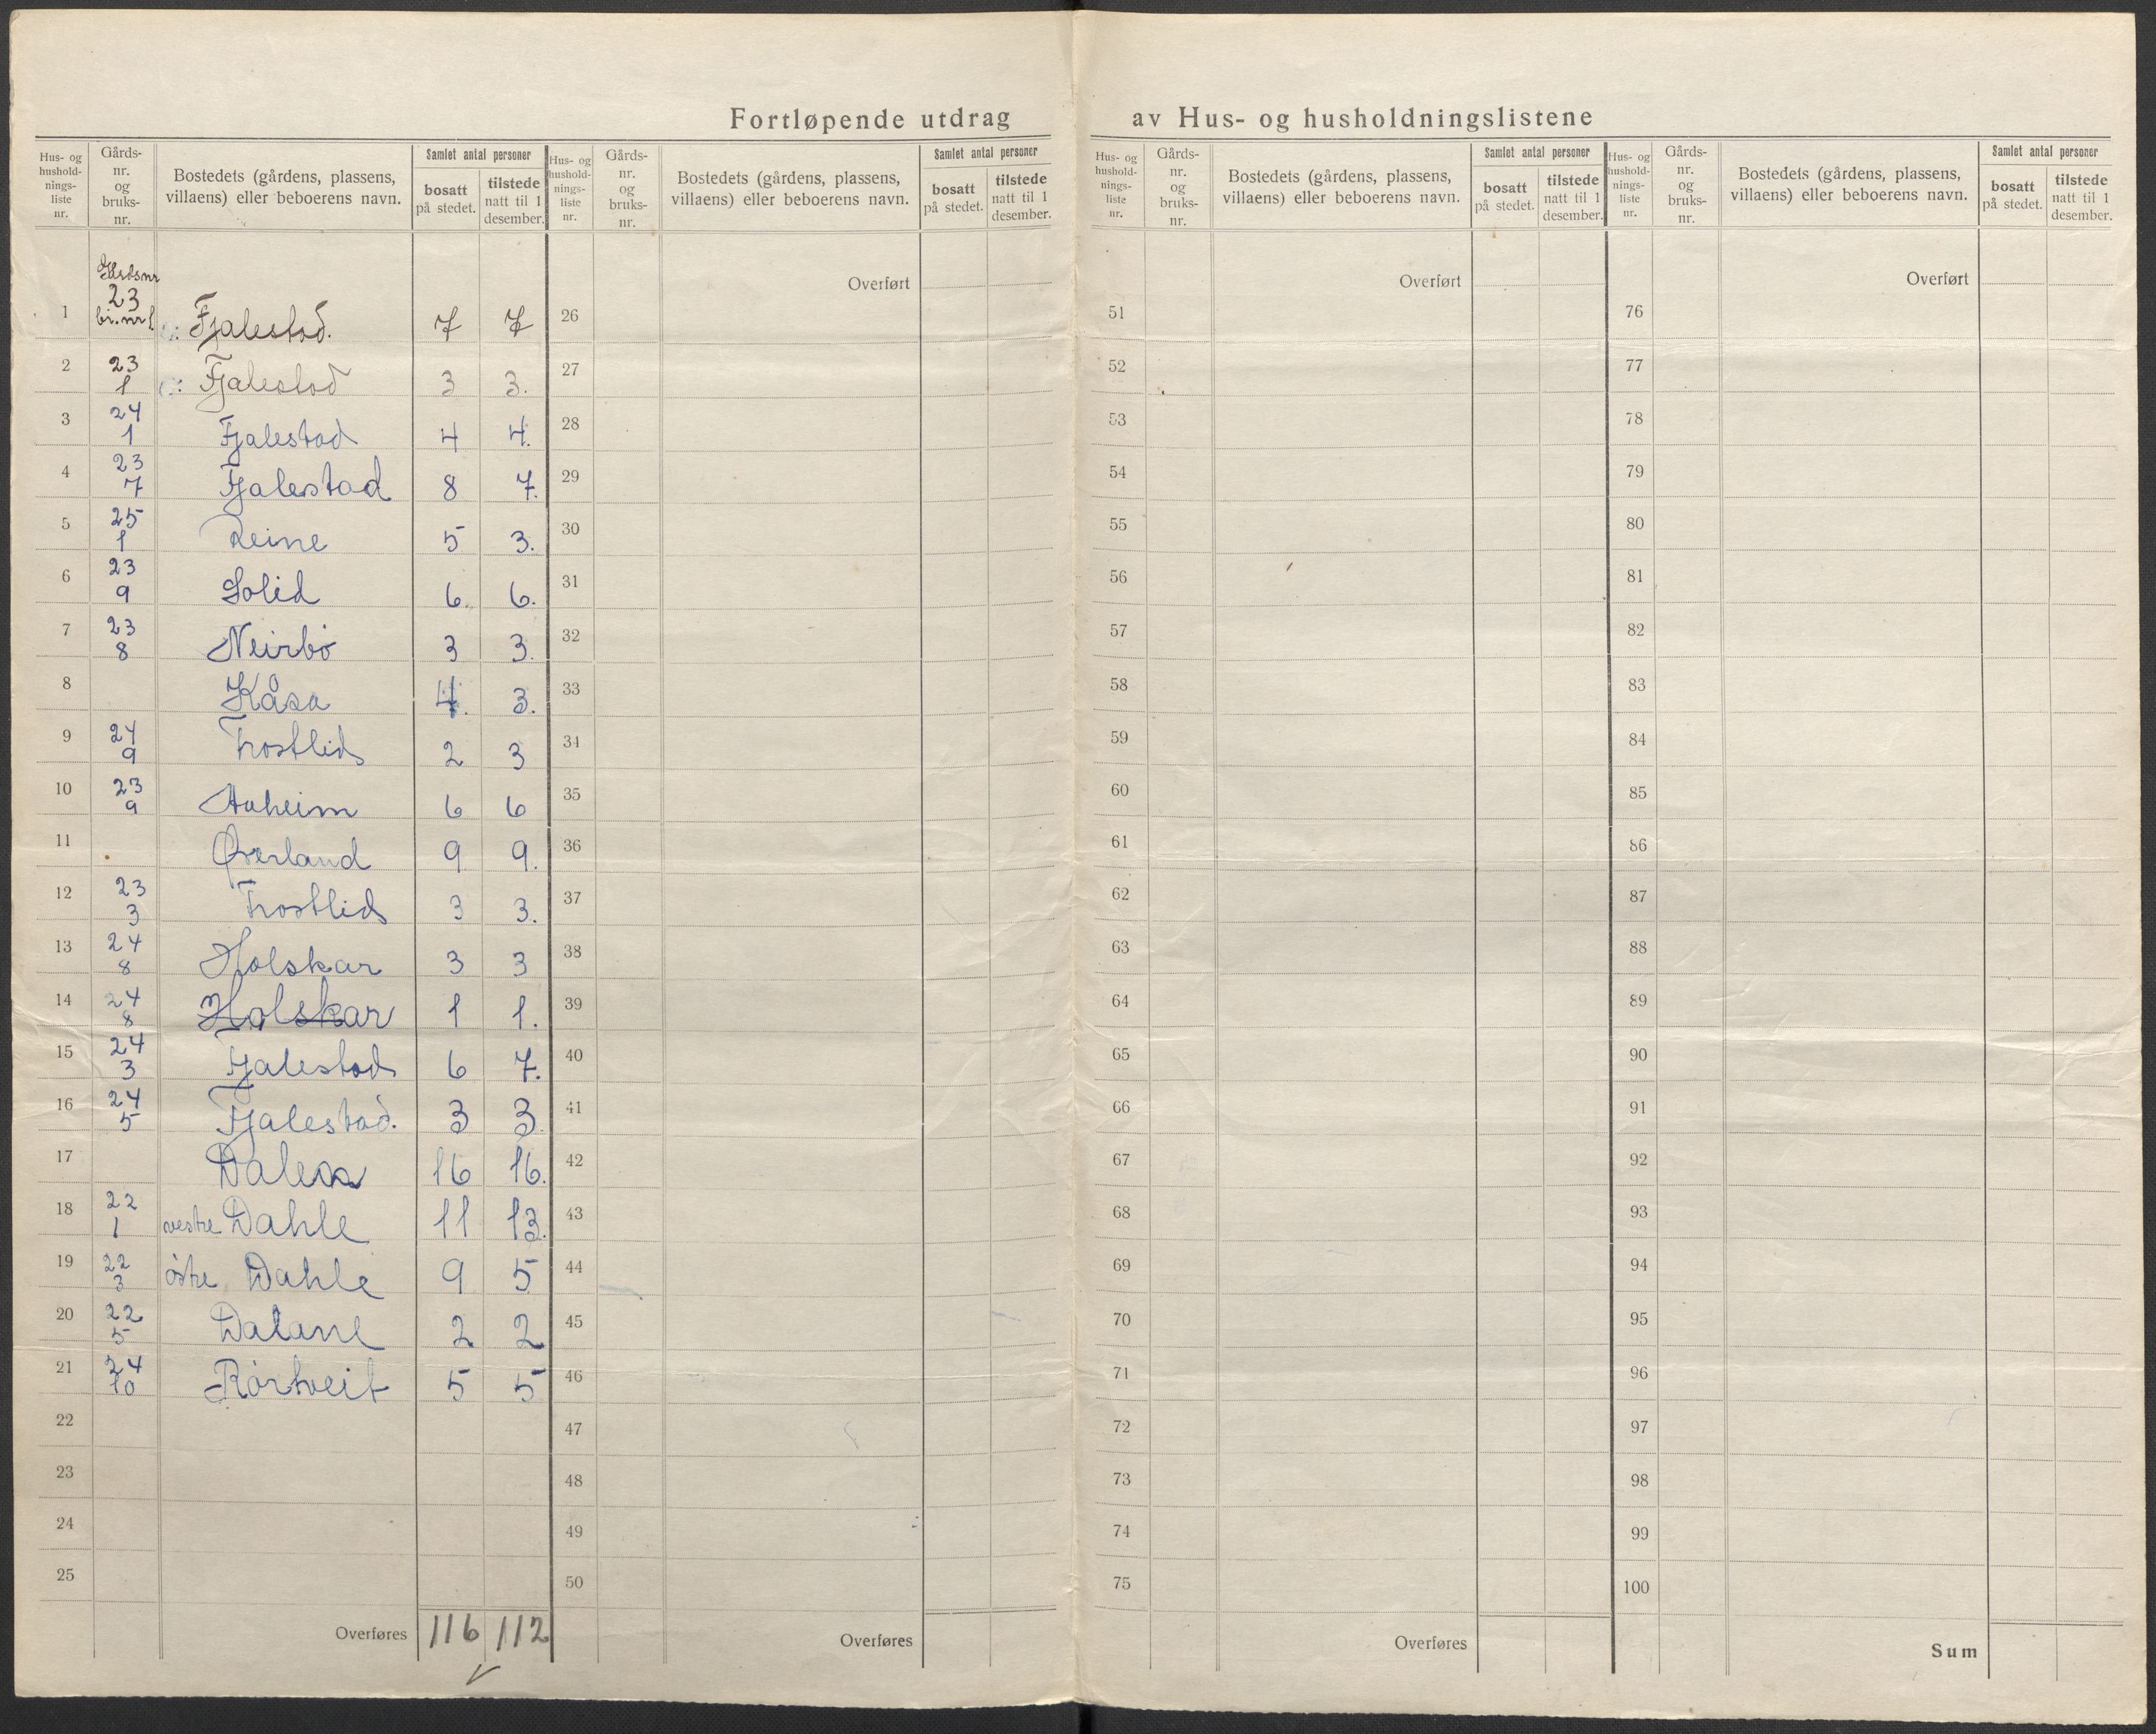 Fortløpende utdrag av Hus- og husholdningslistene
Hus- og husholdnings-liste nr. | Gårds-nr. og bruks-nr. | Bostedets (gårdens, plassens, villaens) eller beboerens navn. | Samlet antal personer | bosatt på stedet. | tilstede natt til 1 desember.
Hus- og husholdnings-liste nr. | Gårds-nr. og bruks-nr. | Bostedets (gårdens, plassens, villaens) eller beboerens navn. | Samlet antal personer | bosatt på stedet. | tilstede natt til 1 desember.
Hus- og husholdnings-liste nr. | Gårds-nr. og bruks-nr. | Bostedets (gårdens, plassens, villaens) eller beboerens navn. | Samlet antal personer | bosatt på stedet. | tilstede natt til 1 desember.
Hus- og husholdnings-liste nr. | Gårds-nr. og bruks-nr. | Bostedets (gårdens, plassens, villaens) eller beboerens navn. | Samlet antal personer | bosatt på stedet. | tilstede natt til 1 desember.
1 Gårdsnr 23 br.nr 1 Fjalestad. 7 7
2 23 1 Fjalestad 3 3.
3 24 1 Fjalestad 4 4.
4 23 7 Fjalestad 8 7.
5 25 1 Reine 5 3.
6 23 9 Solid 6. 6.
7 23 8 Neirbø 3 3.
8 Kåsa 4. 3.
9 24 9 Trostlid 2 3
10 23 9 Aaheim 6 6
11 Øverland 9 9.
12 23 3 Trostlid 3 3.
13 24 8 Holskar 3 3
14 24 8 Holskar 1 1.
15 24 3 Fjalestad 6 7.
16 24 5 Fjalestad. 3 3.
17 16 16.
18 22 1 vestre Dahle 11 13.
19 22 3 østre Dahle 9 5
20 22 5 Dalane 2 2
21 24 10 Rørtveit 5 5
22
23
24
25
Overføres 116 112
Overført
26
27
28
29
30
31
32
33
34
35
36
37
38
39
40
41
42
43
44
45
46
47
48
49
50
Overføres
Overført
51
52
53
54
55
56
57
58
59
60
61
62
63
64
65
66
67
68
69
70
71
72
73
74
75
Overføres
Overført
76
77
78
79
80
81
82
83
84
85
86
87
88
89
90
91
92
93
94
95
96
97
98
99
100
Sum